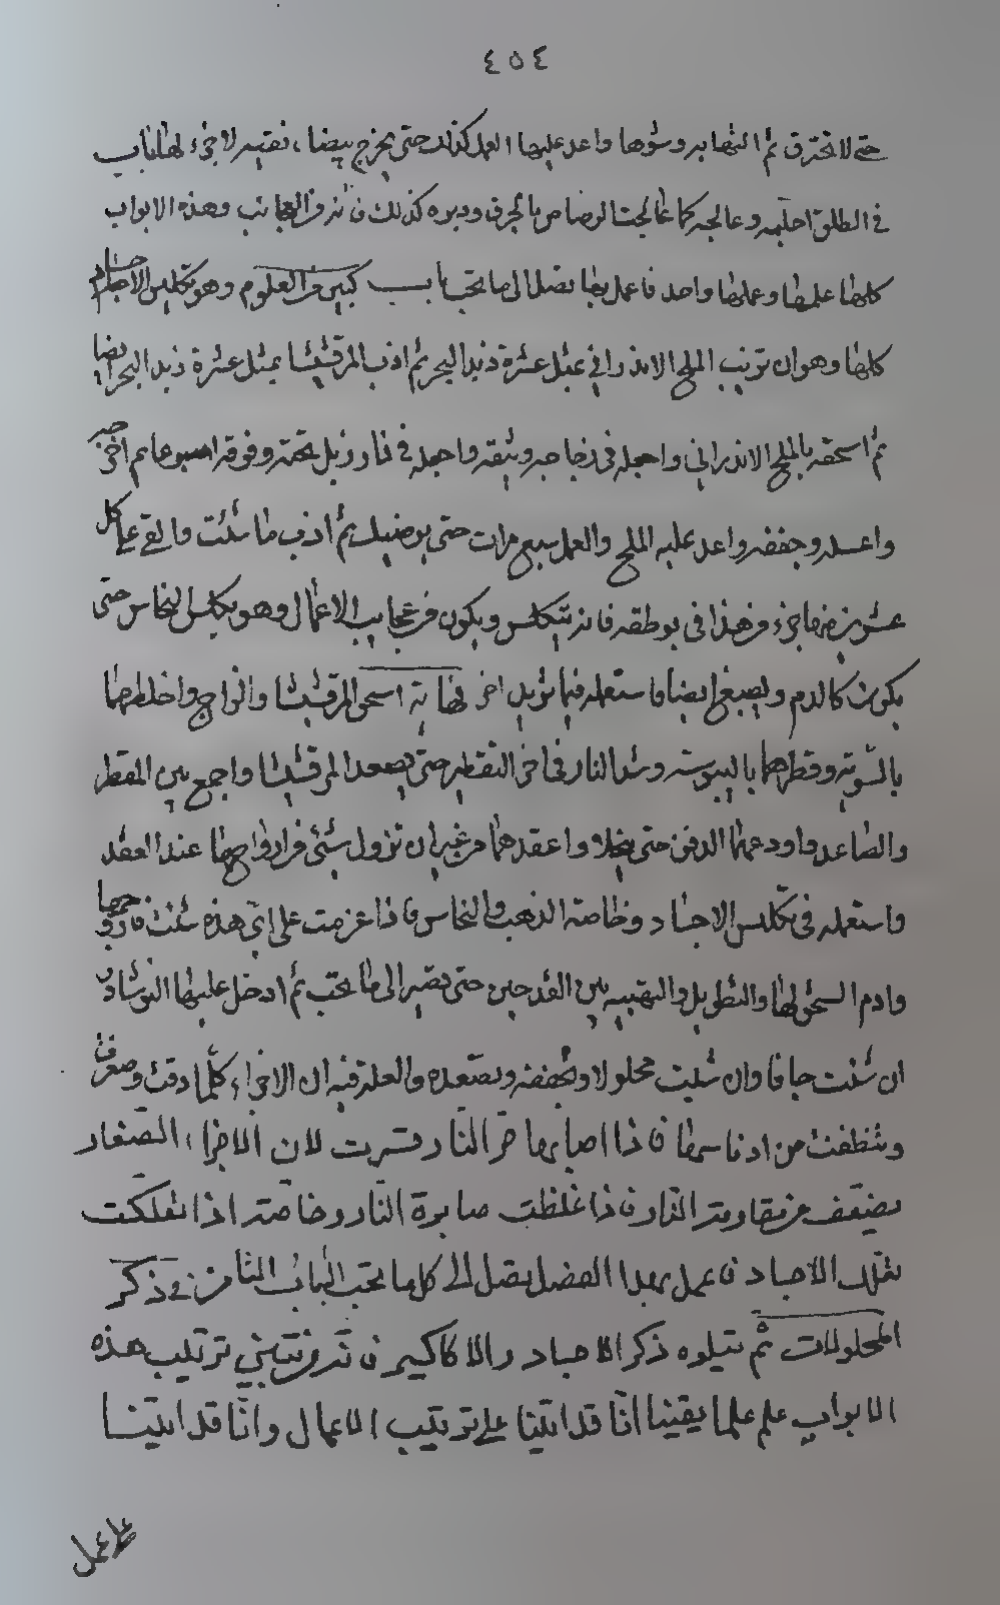 ٤٥٤
حتى لا تحترق ثم التها بدوسوها واعد عليها العمل كذلك حتى يخرج بيضاء نقية لا جزء لها باب
في الطلق احلبه وعالجه كما عالجت الرصاص بالحرق ودبره كذلك فانه من العجائب وهذه الابواب
كلها علمها وعملها واحد فاعمل بها تصل الى ما تحب باب كبير من العلوم وهو تكليس الاجساد
كلها وهو ان تذيب الملح الاندراني بمثل عشرة زبد البحر ثم اذب المرقشيثا بمثل عشرة زبد البحر ايضا
ثم اسحقه بالملح الاندراني واجعله في زجاجه وثيقه واجعله في نار زبل تحته وفوقه اسبوعا ثم اخرجه
واغسله وجففه واعد عليه الملح والعمل سبع مرات حتى يرضيك ثم اذب ما شئت والق على كل
عشرين منها جزء من هذا في بوطقه فانه يتكلس ويكون من عجايب الاعمال وهو يكلس النحاس حتى
يكون كالدم ويصبغ ايضا فاستعمله فيما تريد اخر لها تة اسحق المرقشيثا والزاج واخلطهما
بالسوية وقطرهما باليبوسة وشد النار في اخر التقطير حتى يصعد المرقشيثا واجمع بين المقطر
والصاعد واودعهما الدفن حتى ينحلا واعقدهما من غير ان تزول شئ من ارواحها عند العقد
واستعمله في تكليس الاجساد وخاصة الذهب والنحاس فاذا عزمت على اي هذه شئت فازوجها
وادم السحق لها والتطويل والتهبيه بين القدحين حتى تصير الى ما تحب ثم ادخل عليها النوشادر
ان شئت جافا وان شئت محلولا وتجففه وتصعده والعلة فيه ان الاجزاء كلما دقت وصغرت
وتنظفت من ادناسها فاذا اصابها حر النار تسربت لان الاجزاء الصغار
تضعف عن مقاومة النار فاذا غلظت صابرة النار وخاصة اذا تملكت
بتلك الاجساد فاعمل بهذا الفصل تصل الى كل ما تحب الباب الثامن في ذكر
المحلولات ثم نتلوه ذكر الاجساد والاكاسير فانه من تبين ترتيب هذه
الابواب علم علما يقينا انا قد اتينا على ترتيب الاعمال وانا قد اتينا
على عمل